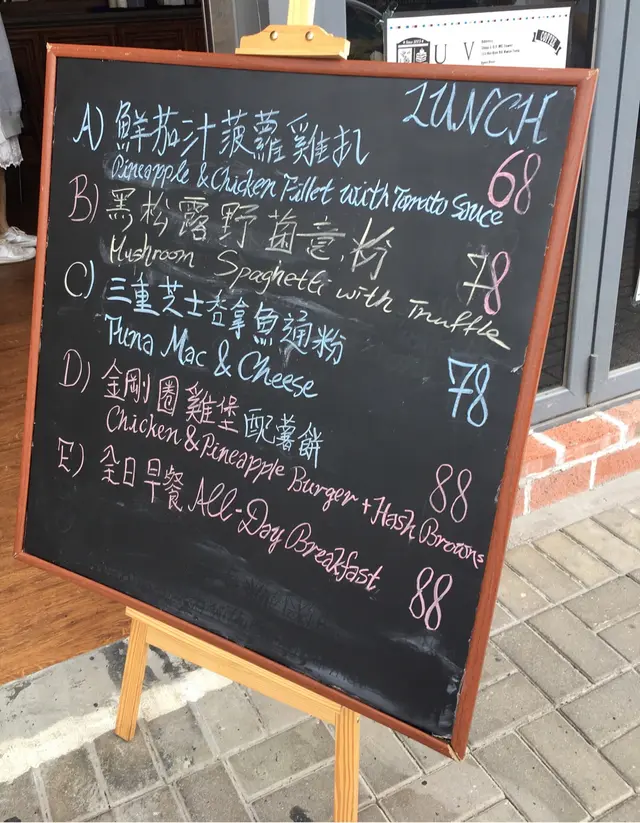 U V
COFFEE
LUNCH
A) 鮮茄汁菠蘿雞扒
Pineapple & Chicken Fillet with Tomato Sauce 68
B) 黑松露野菌意粉
Mushroom Spaghetti with Truffle 78
C) 三重芝士吞拿魚通粉
Tuna Mac & Cheese 78
D) 金剛圈雞堡配薯餅
Chicken & Pineapple Burger + Hash Browns 88
E) 全日早餐 All-Day Breakfast 88